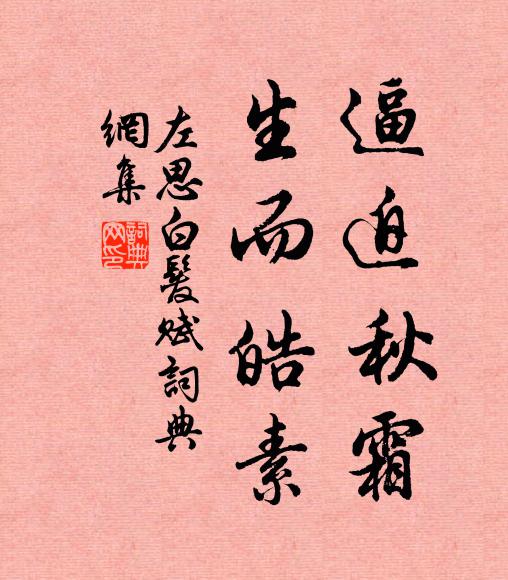 逼迫秋霜
生而皓素
左思白髮賦詞典
網集
詞典
网印